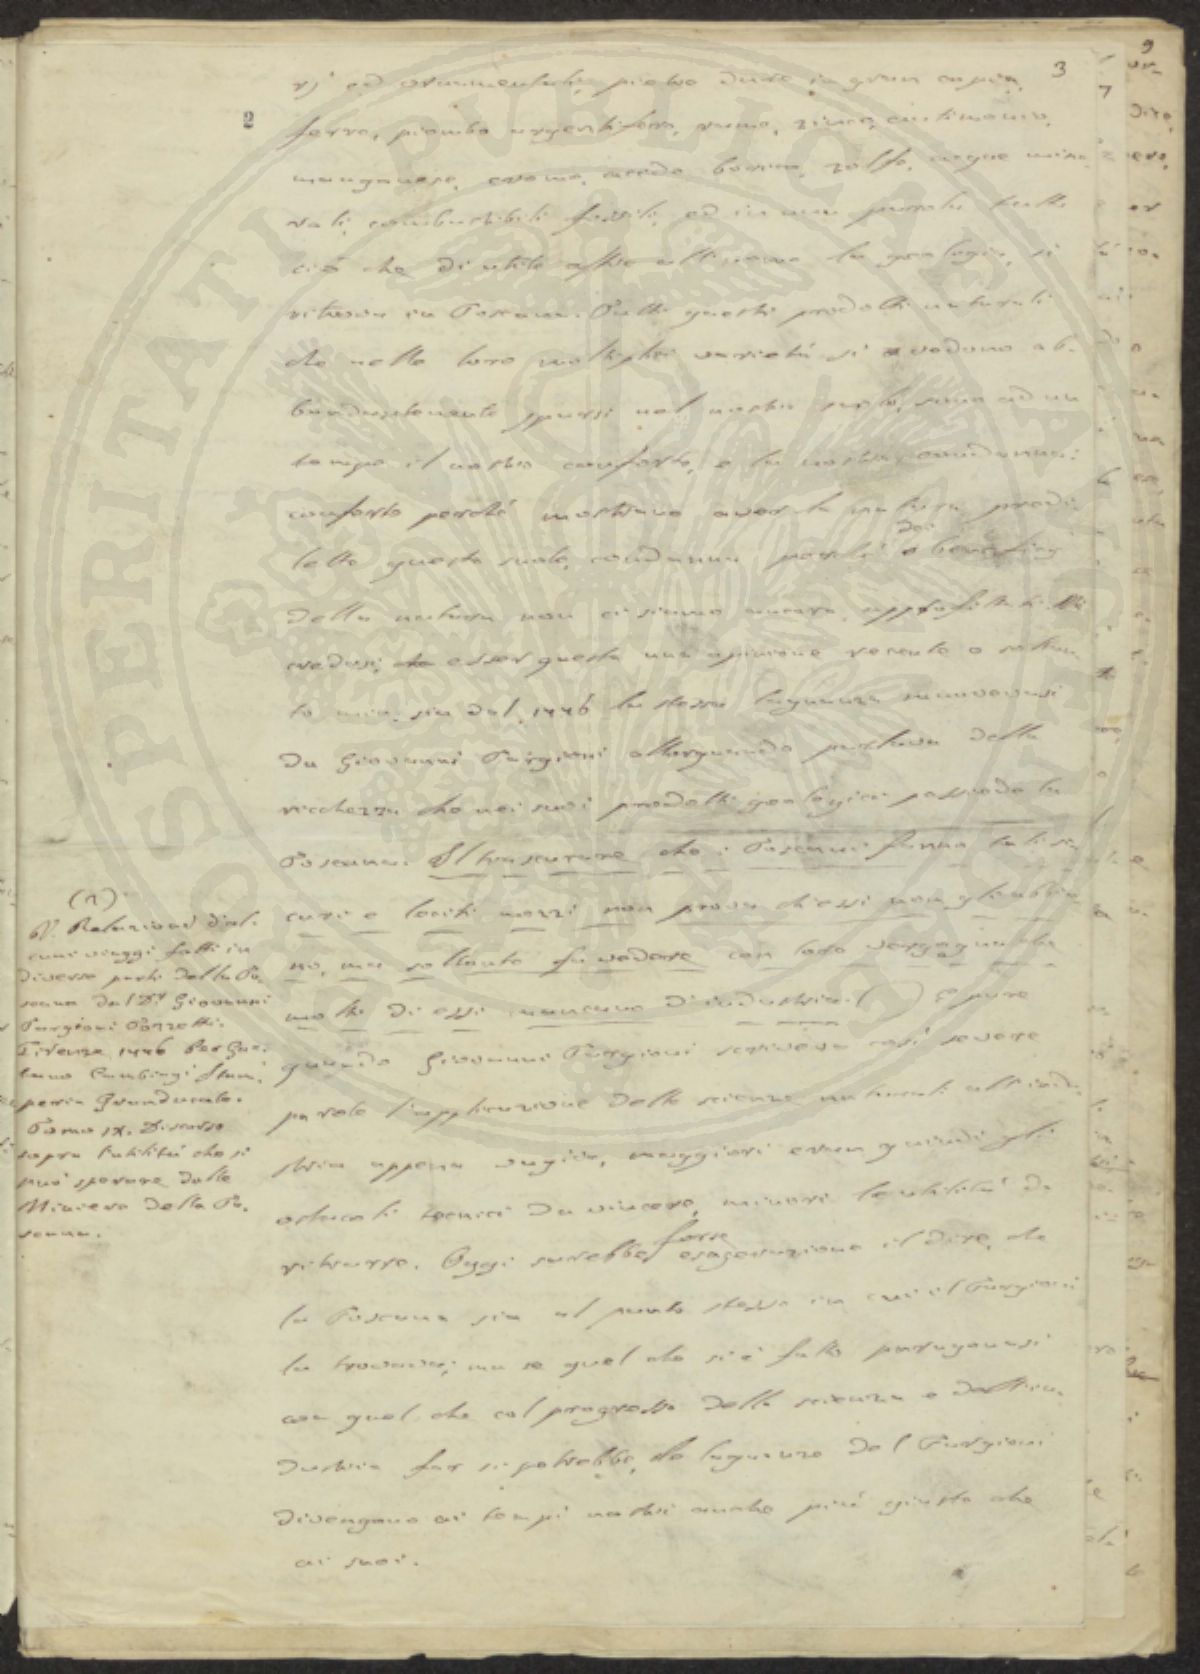 3
2
rj ed ornamentali, pietre dure in gran copia,
ferro, piombo argentifero, rame, zinco, antimonio,
manganese, cromo, acido borico, zolfo, acque mine-
rali, combustibili fossili, ed in una parola tutto
ciò che di utile offre all'uomo la geologia, si
ritrova in Toscana. Tutti questi prodotti naturali
che nelle loro molteplici varietà si vedono ab-
bondantemente sparsi nel nostro suolo, sono ad un
tempo il nostro conforto, e la nostra condanna:
conforto perché mostrano aver la natura predi-
letto questo suolo, condanna perché dei beneficj
della natura non ci siamo ancora approfittati. Né
credasi, esser questa una opinione recente o soltan-
to mia, sin dal 1776 la stessa lagnanza muovevasi
da Giovanni Targioni allorquando parlava della
ricchezza che nei suoi prodotti geologici possiede la
Toscana. Il trascurare che i Toscani fanno tali si-
curi e leciti mezzi non prova ch'essi non gl'abbia-
no, ma soltanto fa vedere con loro vergogna che
molti di essi mancano d'industria. ( ) Eppure
quando Giovanni Targioni scriveva così severe
parole l'applicazione delle scienze naturali all'indu-
stria appena vagiva, maggiori eran quindi gli
ostacoli tecnici da vincere, minori le utilità da
ritrarre. Oggi sarebbe forse esagerazione il dire, che
la Toscana sia al punto stesso in cui il Targioni
la trovava; ma se quel che si è fatto paragonasi
con quel che col progresso della scienza e dell'in-
dustria far si potrebbe, le lagnanze del Targioni
divengono ai tempi nostri anche più giuste che
ai suoi.
(1)
V. Relazioni d'al-
cuni viaggi fatti in
diverse parti della To-
scana dal Dr. Giovanni
Targioni Tozzetti.
Firenze 1776 Per Gae-
tano Cambiagi Stam-
peria Granducale.
Tomo IX. Discorso
sopra l'utilità che si
può sperare dalle
Miniere della To-
scana.
SPERITATI PUBLICAE